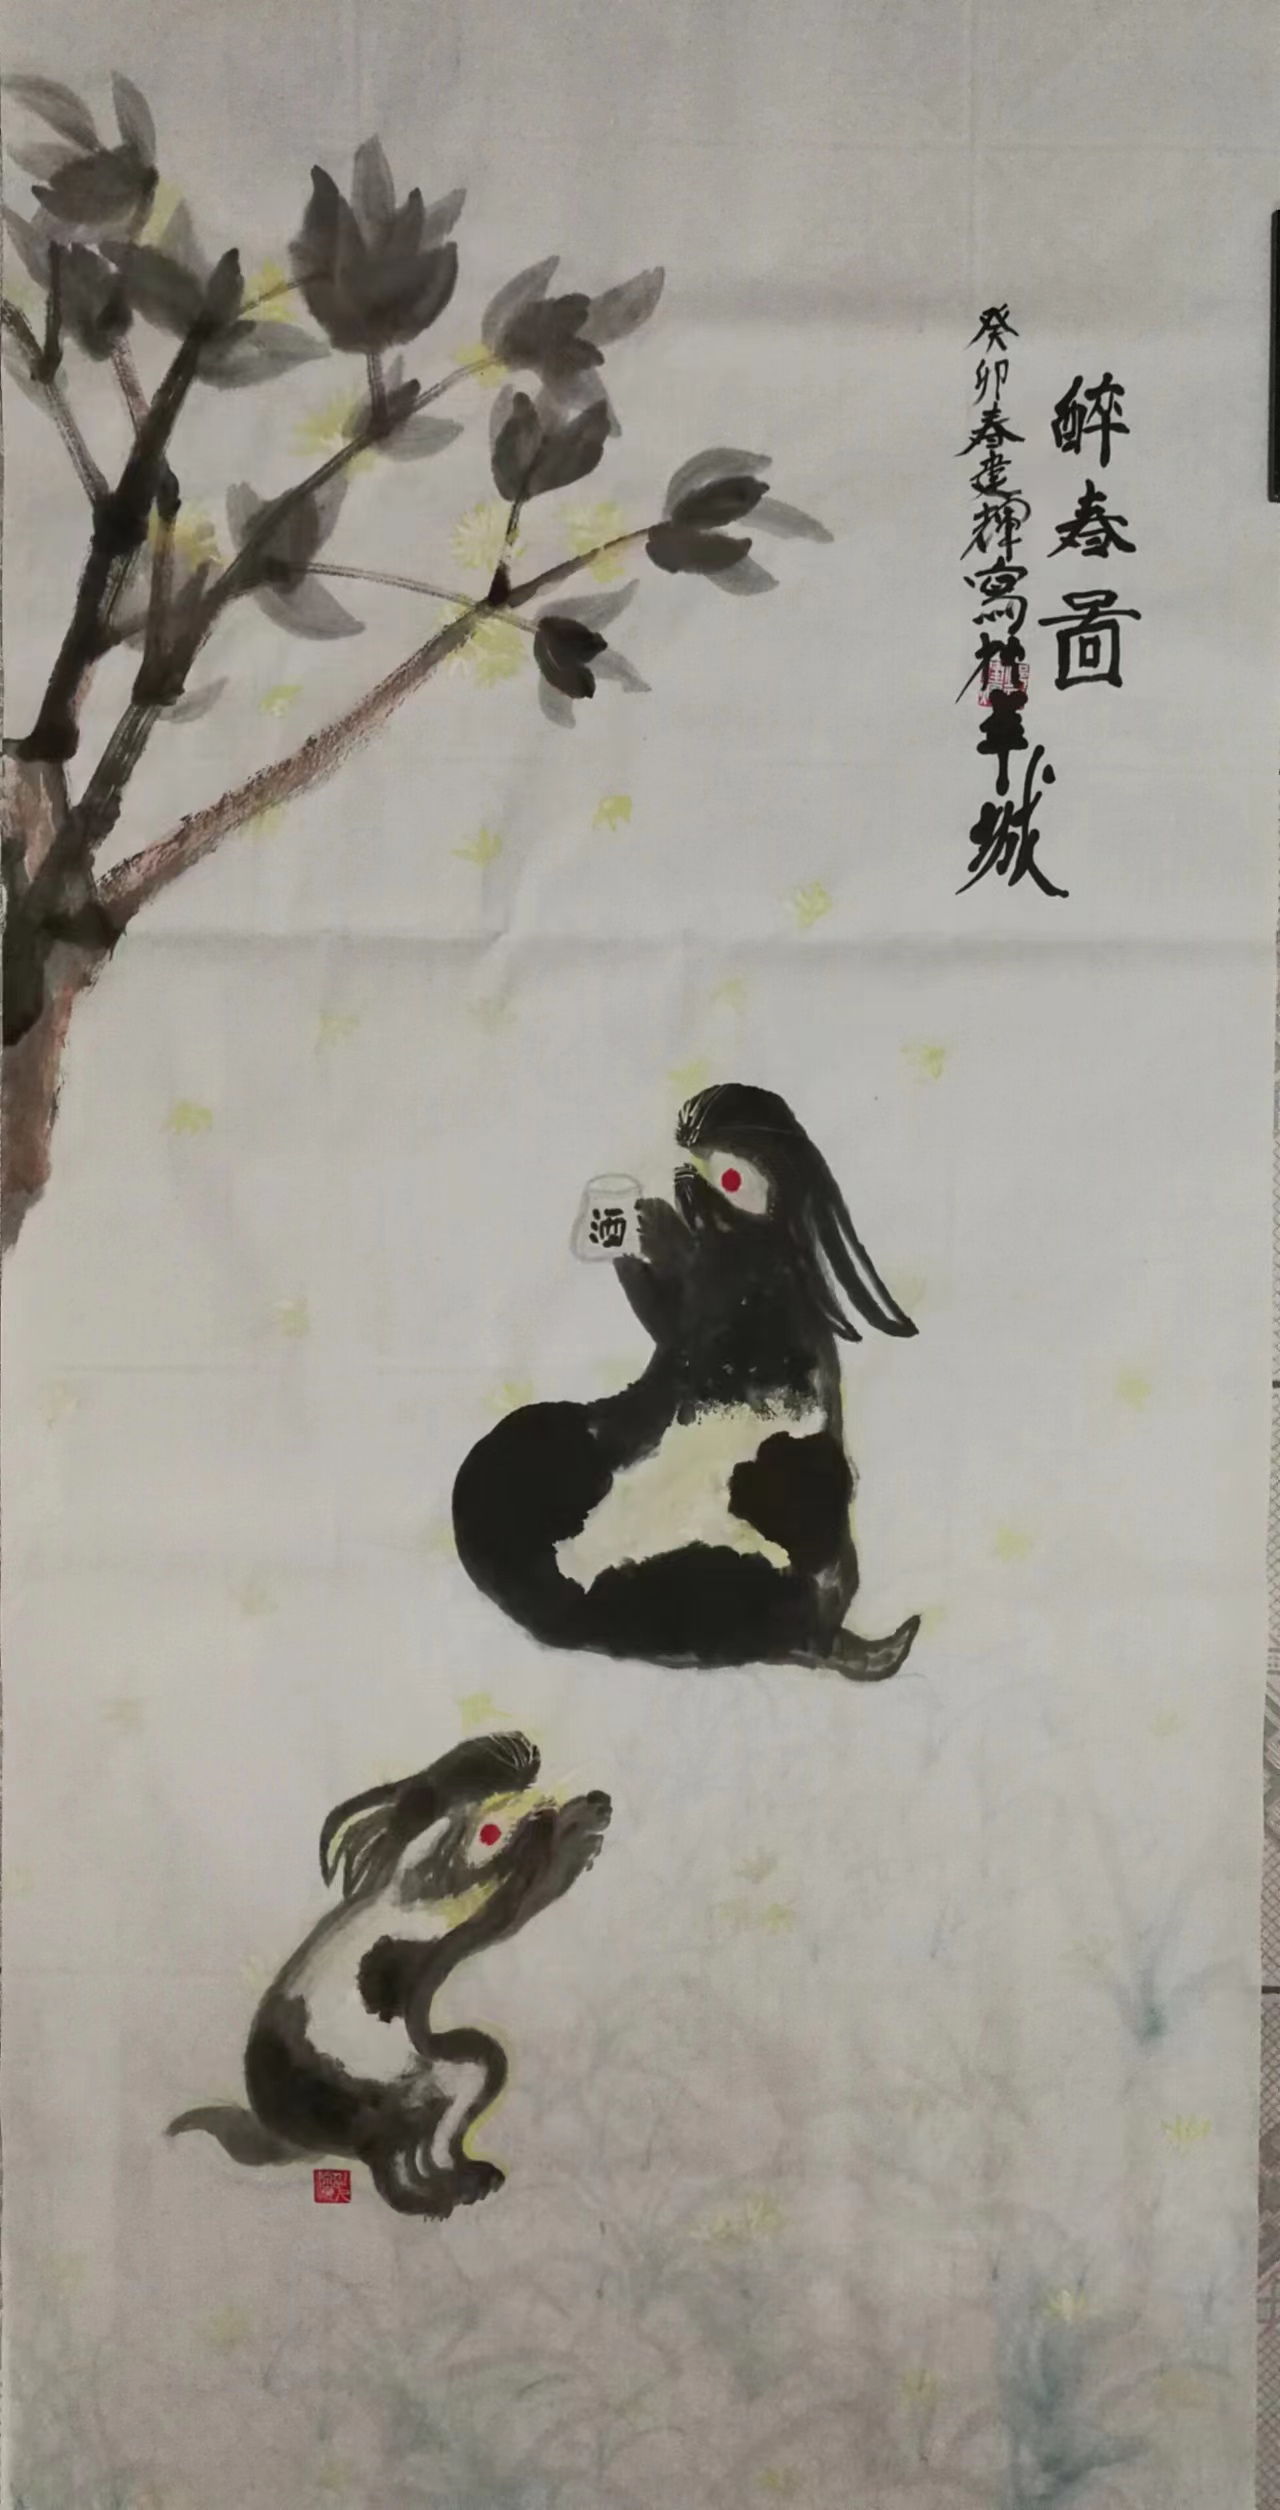 醉春圖
癸卯春建輝寫於羊城
酒